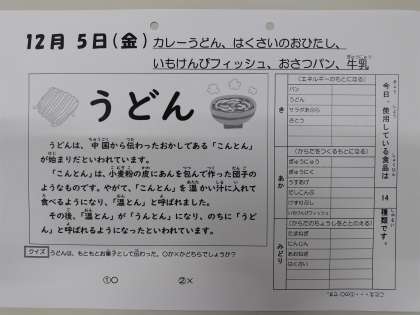 12月 5日(金) カレーうどん、はくさいのおひたし、
いもけんぴフィッシュ、おさつパン、牛乳
うどん
うどんは、中国から伝わったおかしである「こんとん」
が始まりだといわれています。
「こんとん」は、小麦粉の皮にあんを包んで作った団子の
ようなものです。やがて、「こんとん」を温かい汁に入れて
食べるようになり、「温とん」と呼ばれました。
その後、「温とん」が「うんとん」になり、のちに「うど
ん」と呼ばれるようになったといわれています。
クイズ うどんは、もともとお菓子として伝わった。〇か×かどちらでしょうか?
①〇 ②×
今日、使用している食品は 14 種類です。
き
(エネルギーのもとになる)
パン
うどん
サラダあぶら
さとう
あか
(からだをつくるもとになる)
ぎゅうにゅう
ぎゅうにく
うすあげ
だしこんぶ
けずりぶし
いもけんぴフィッシュ
みどり
(からだのちょうしをととのえる)
たまねぎ
にんじん
あおねぎ
はくさい